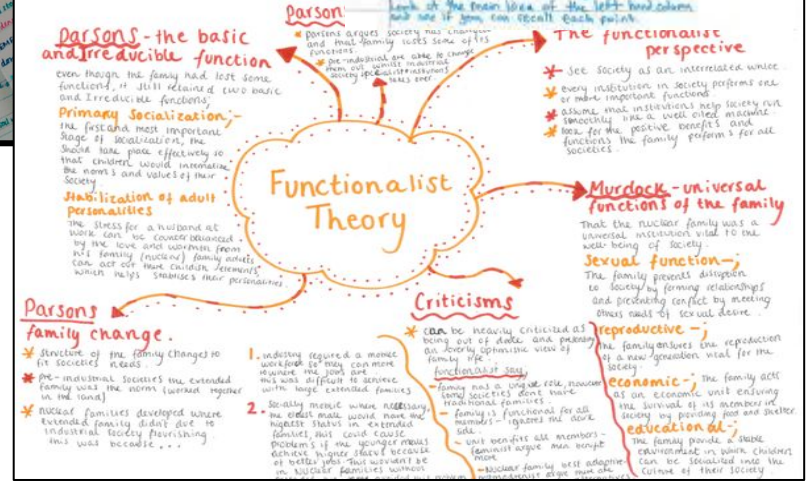 Look at the main idea of the left hand column
and see if you can recall each point.
Parson
* parsons argues society has changed
and that family loses some of its
functions.
* pre-industrial are able to change
them out whilst industrial
society specialist institutions
takes over.
Parsons - the basic
and Irreducible function
even though the family had lost some
functions, it still retained two basic
and Irreducible functions;
Primary Socialization;-
The first and most important
stage of socialization, the
should take place effectively so
that children would internalise
the norms and values of their
society
Stabilization of adult
personalities
The stress for a husband at
work can be counterbalanced
by the love and warmth from
his family (nuclear) family adults
can act out there childish elements,
which helps stabilises their personalities.
The functionalist
perspective
* See society as an interrelated whole
* every institution in society performs one
or more important functions.
* assume that institutions help society run
smoothly like a well oiled machine.
* look for the positive benefits and
functions the family performs for all
societies.
Functionalist
Theory
Murdock - universal
functions of the family
That the nuclear family was a
universal institution vital to the
well-being of society.
Sexual function-;
The family prevents disruption
to society by forming relationships
and preventing conflict by meeting
others needs of sexual desire.
reproductive -;
The family ensures the reproduction
of a new generation vital for the
society.
economic-; The family acts
as an economic unit ensuring
the survival of its members in
society by providing food and shelter.
educational-;
The family provide a stable
environment in which children
can be socialized into the
culture of their society.
Parsons
family change.
* Structure of the family changes to
fit societies needs.
* pre-industrial societies the extended
family was the norm (worked together
in the land)
* nuclear families developed where
extended family didn't due to
industrial society flourishing
this was because...
1. industry required a mobile
workforce so they can move
to where the jobs are
this was difficult to achieve
with large extended families
2. Socially mobile where necessary,
the oldest male would have the
highest status in extended
families, this could cause
problems if the younger males
achieve higher status because
of better jobs. This wouldn't be
in nuclear families without
Criticisms
* can be heavily criticized as
being out of date and presenting
an overly optimistic view of
family life.
functionalist say,
- family has a unique role, however
some societies don't have
traditional families.
- family is functional for all
members - ignores the dark
side.
- unit benefits all members -
feminist argue men benefit
more
- Nuclear family best adaptive-